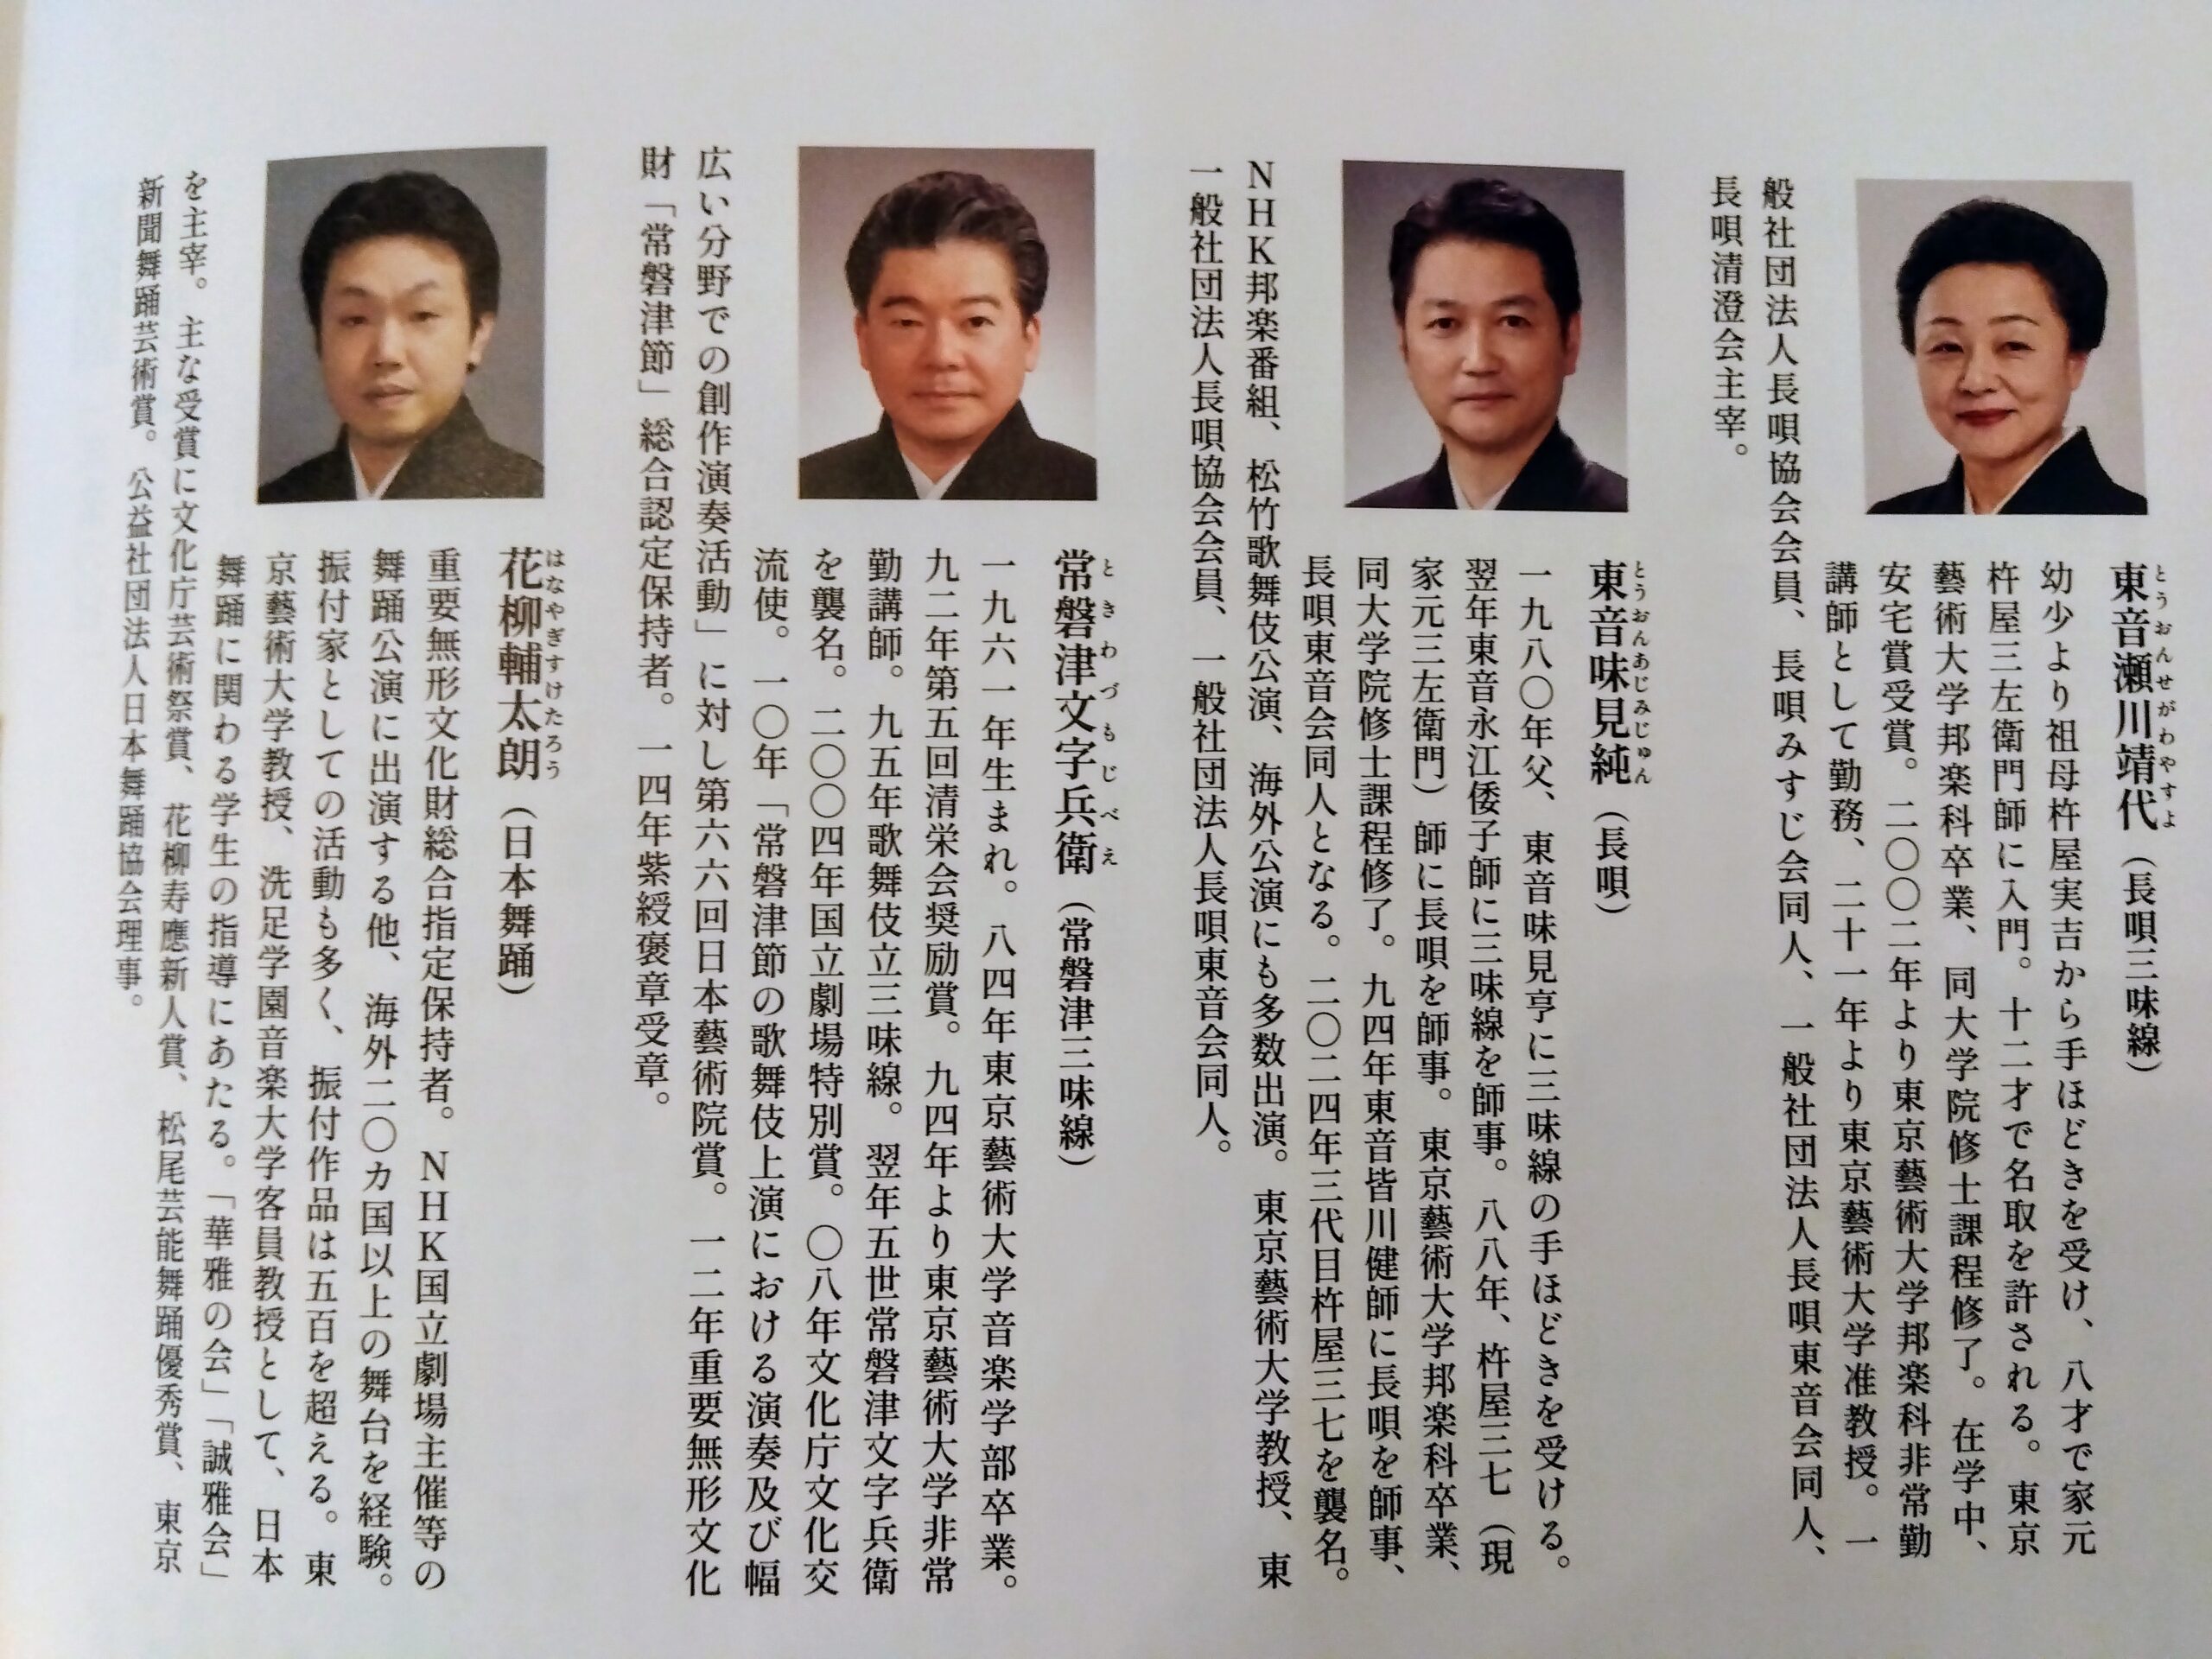 東音瀬川靖代（長唄三味線）
とうおんせがわやすよ
幼少より祖母杵屋実吉から手ほどきを受け、八才で家元
杵屋三左衛門師に入門。十二才で名取を許される。東京
藝術大学邦楽科卒業、同大学院修士課程修了。在学中、
安宅賞受賞。二〇〇二年より東京藝術大学邦楽科非常勤
講師として勤務、二十一年より東京藝術大学准教授。一
般社団法人長唄協会会員、長唄みすじ会同人、一般社団法人長唄東音会同人、
長唄清澄会主宰。
東音味見純（長唄）
とうおんあじみじゅん
一九八〇年父、東音味見亨に三味線の手ほどきを受ける。
翌年東音永江倭子師に三味線を師事。八八年、杵屋三七（現
家元三左衛門）師に長唄を師事。東京藝術大学邦楽科卒業、
同大学院修士課程修了。九四年東音皆川健師に長唄を師事、
長唄東音会同人となる。二〇二四年三代目杵屋三七を襲名。
NHK邦楽番組、松竹歌舞伎公演、海外公演にも多数出演。東京藝術大学教授、東
一般社団法人長唄協会会員、一般社団法人長唄東音会同人。
常磐津文字兵衛（常磐津三味線）
ときわづもじべえ
一九六一年生まれ。八四年東京藝術大学音楽学部卒業。
九二年第五回清栄会奨励賞。九四年より東京藝術大学非常
勤講師。九五年歌舞伎立三味線。翌年五世常磐津文字兵衛
を襲名。二〇〇四年国立劇場特別賞。〇八年文化庁文化交
流使。一〇年「常磐津節の歌舞伎上演における演奏及び幅
広い分野での創作演奏活動」に対し第六六回日本藝術院賞。一二年重要無形文化
財「常磐津節」総合認定保持者。一四年紫綬褒章受章。
花柳輔太朗（日本舞踊）
はなやぎすけたろう
重要無形文化財総合指定保持者。NHK国立劇場主催等の
舞踊公演に出演する他、海外二〇カ国以上の舞台を経験。
振付家としての活動も多く、振付作品は五百を超える。東
京藝術大学教授、洗足学園音楽大学客員教授として、日本
舞踊に関わる学生の指導にあたる。「華雅の会」「誠雅会」
を主宰。主な受賞に文化庁芸術祭賞、花柳寿應新人賞、松尾芸能舞踊優秀賞、東京
新聞舞踊芸術賞。公益社団法人日本舞踊協会理事。